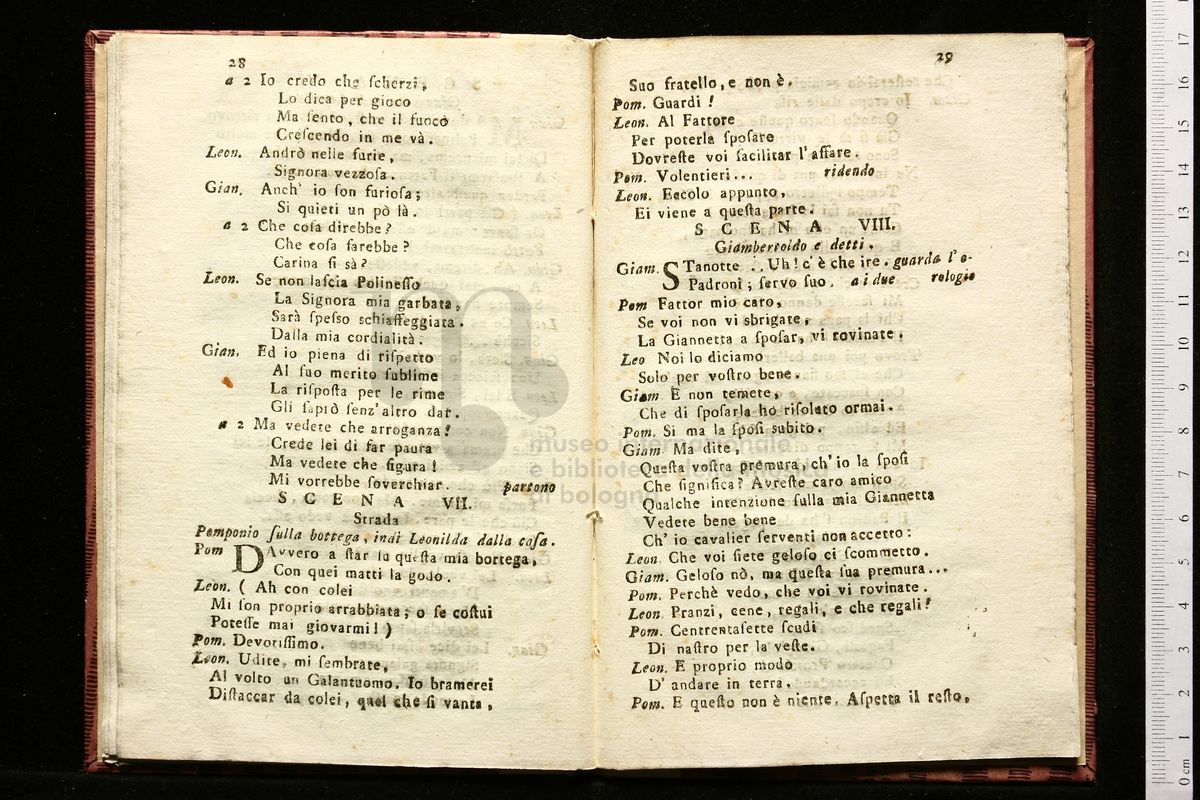 28
a 2 Io credo che ſcherzi,
Lo dica per gioco
Ma ſento, che il fuoco
Creſcendo in me và.
Leon. Andrò nelle furie,
Signora vezzoſa.
Gian. Anch' io ſon furioſa;
Si quieti un pò là.
a 2 Che coſa direbbe?
Che coſa farebbe?
Carina ſi sà?
Leon. Se non laſcia Polineſſo
La Signora mia garbata,
Sarà ſpeſſo schiaffeggiata.
Dalla mia cordialità.
Gian. Ed io piena di riſpetto
Al ſuo merito ſublime
La riſpoſta per le rime
Gli ſaprò ſenz' altro dar.
a 2 Ma vedete che arroganza!
Crede lei di far paura
Ma vedete che figura!
Mi vorrebbe ſoverchiar. partono
SCENA VII.
Strada
Pomponio ſulla bottega, indi Leonilda dalla caſa.
Pom DAvvero a ſtar ſu queſta mia bottega,
Con quei matti la godo.
Leon. ( Ah con colei
Mi ſon proprio arrabbiata; o ſe coſtui
Poteſſe mai giovarmi! )
Pom. Devotiſſimo.
Leon. Udite, mi ſembrate,
Al volto un Galantuomo. Io bramerei
Diſtaccar da colei, quel che ſi vanta,
29
Suo fratello, e non è.
Pom. Guardi!
Leon. Al Fattore
Per poterla ſpoſare
Dovreſte voi facilitar l'affare.
Pom. Volentieri... ridendo
Leon. Eccolo appunto,
Ei viene a queſta parte.
SCENA VIII.
Giambertoldo e detti.
Giam. STanotte .. Uh! c'è che ire. guarda l'o-
Padroni; ſervo ſuo. a i due rologio
Pom Fattor mio caro,
Se voi non vi sbrigate,
La Giannetta a ſpoſar, vi rovinate.
Leo Noi lo diciamo
Solo per voſtro bene.
Giam E non temete,
Che di ſpoſarla ho riſoluto ormai.
Pom. Si ma la ſpoſi ſubito.
Giam Ma dite,
Queſta voſtra premura, ch'io la ſpoſi
Che ſignifica? Avreſte caro amico
Qualche intenzione ſulla mia Giannetta
Vedete bene bene
Ch' io cavalier ſerventi non accetto:
Leon. Che voi ſiete geloſo ci ſcommetto.
Giam. Geloſo nò, ma queſta ſua premura...
Pom. Perchè vedo, che voi vi rovinate.
Leon. Pranzi, cene, regali, e che regali!
Pom. Centrentaſette ſcudi
Di naſtro per la veſte.
Leon. E proprio modo
D' andare in terra.
Pom. E queſto non è niente. Aſpetta il reſto,
museo internazionale
e biblioteca della musica
di bologna
0 cm 1 2 3 4 5 6 7 8 9 10 11 12 13 14 15 16 17